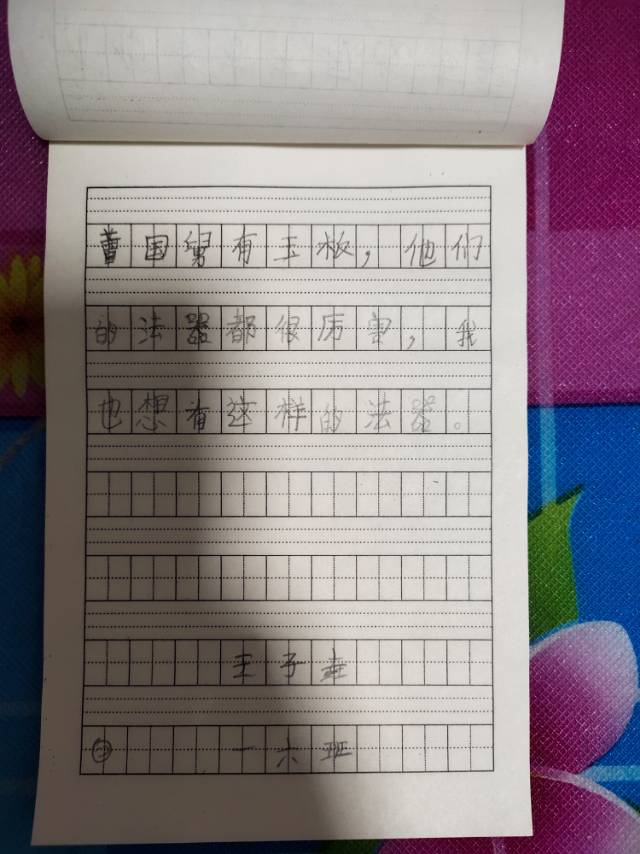 曹国舅有玉板，他们
的法器都很厉害，我
也想有这样的法器。
王子垚
一六班